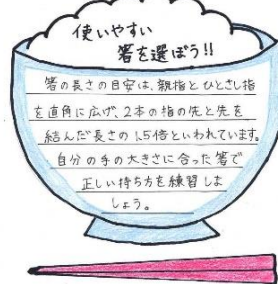 使いやすい
箸を選ぼう!!
箸の長さの目安は、親指とひとさし指
を直角に広げ、2本の指の先と先を
結んだ長さの1.5倍といわれています。
自分の手の大きさに合った箸で
正しい持ち方を練習しま
しょう。